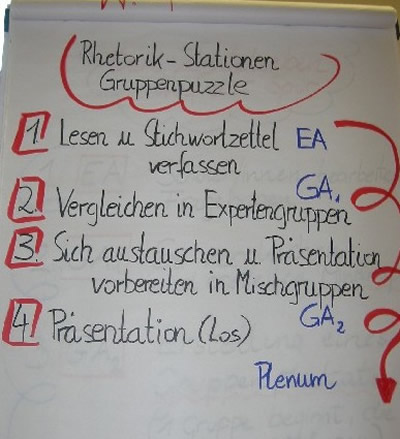 Rhetorik-Stationen
Gruppenpuzzle
1. Lesen u Stichwortzettel EA
verfassen
GA₁
2. Vergleichen in Expertengruppen
3. Sich austauschen u Präsentation
vorbereiten in Mischgruppen
GA₂
4. Präsentation (Los)
Plenum